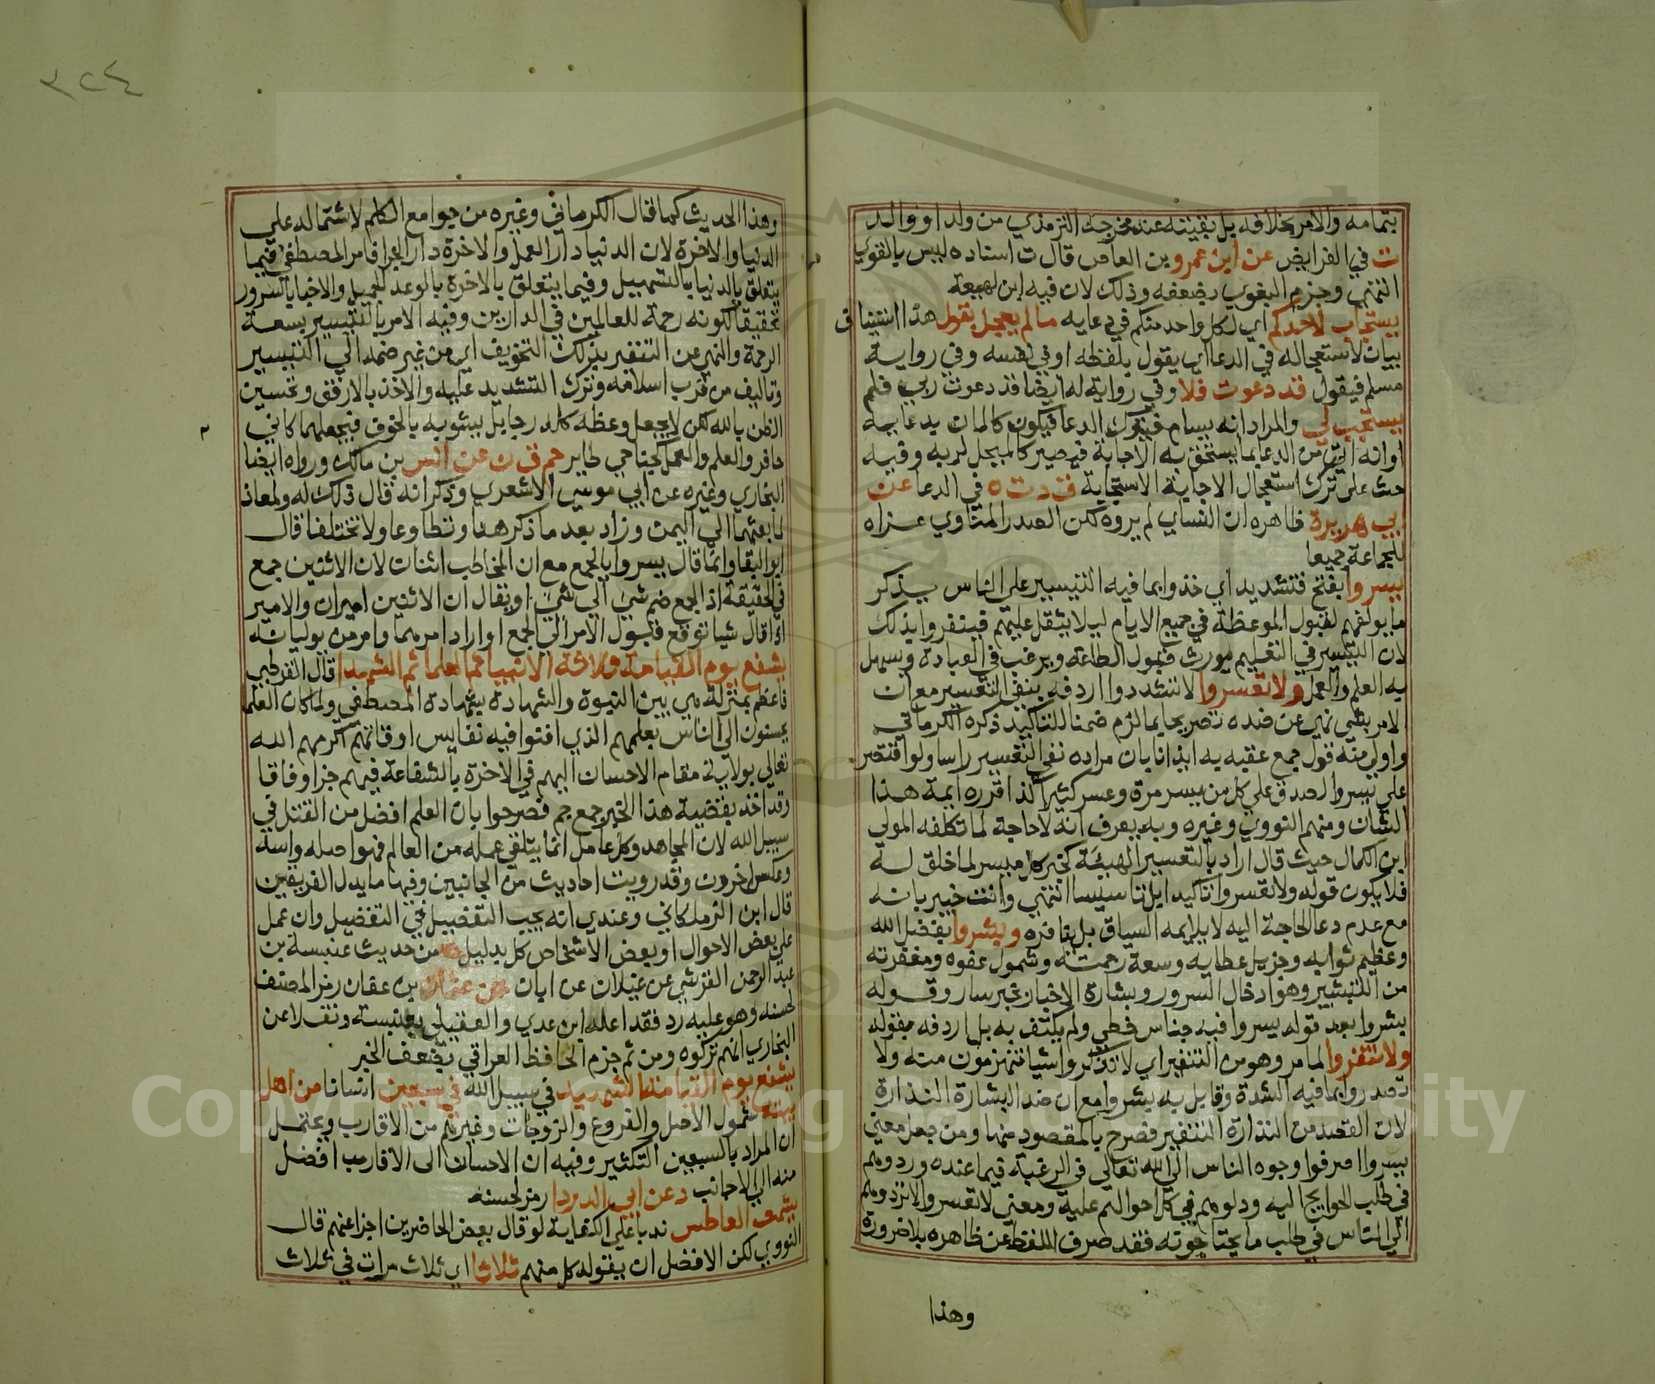 بتمامه والامر بخلافه بل بقيته عند مخرجه الترمذي من ولد او والد
ت في الفرايض عن ابن عمرو بن العاص قال ت اسناده ليس بالقوي
انتهى وجزم البغوي بضعفه وذلك لان فيه ابن لهيعة
يستجاب لاحدكم اي لكل واحد منكم في دعايه ما لم يعجل يقول هذا استيناف
بيان لاستعجاله في الدعا اي يقول بلفظه او في نفسه وفي رواية
مسلم فيقول قد دعوت فلا وفي رواية له ايضا قد دعوت ربي فلم
يستجب لي والمراد انه يسام فيترك الدعا فيكون كالمان بدعايه
او انه اتى من الدعا بما يستحق به الاجابة فيصير كالمبخل لربه وفيه
حث على ترك استعجال الاجابة الاستجابة ق د ت ه في الدعا عن
ابي هريرة ظاهره ان النساي لم يروه لكن الصدر المناوي عزاه
للجماعة جميعا
يسروا بفتح فتشديد اي خذوا بما فيه التيسير على الناس بذكر
ما يولفهم لقبول الموعظة في جميع الايام ليلا يثقل عليهم فينفروا وذلك
لان التيسير في التعليم يورث قبول الطاعة ويرغب في العبادة ويسهل
به العلم والعمل ولا تعسروا لا تشددوا اردفه بنفي التعسير مع ان
الامر بشي نهي عن ضده تصريحا بما لزم ضمنا للتاكيد ذكره الكرماني
واولى منه قول جمع عقبه به ايذانا بان مراده نفي التعسير راسا ولو اقتصر
على يسروا لصدق على كل من يسر مرة وعسر كثيرا كذا قرره ايمة هذا
الشان ومنهم النووي وغيره وبه يعرف انه لا حاجة لما تكلفه المولى
ابن الكمال حيث قال اراد بالتعسير التهيئة كخبر كل ميسر لما خلق له
فلا يكون قوله ولا تعسروا تاكيدا بل تاسيسا انتهى وانت خبير بانه
مع عدم دعا الحاجة اليه لا يلايمه السياق بل ينافره وبشروا بفضل الله
وعظيم ثوابه وجزيل عطايه وسعة رحمته وشمول عفوه ومغفرته
من التبشير وهو ادخال السرور وبشارة الاخبار بخبر سار وقوله
بشروا بعد قوله يسروا فيه جناس خطي ولم يكتف به بل اردفه بقوله
ولا تنفروا لما مر وهو من التنفير اي لا تذكروا شيا تنهزمون منه ولا
تصدروا بما فيه الشدة وقابل به بشروا مع ان ضد البشارة النذارة
لان القصد من النذارة التنفير فصرح بالمقصود منها ومن جعل معنى
يسروا اصرفوا وجوه الناس الى الله تعالى في الرغبة فيما عنده وردوهم
في طلب الحوايج اليه ودلوهم في كل احوالهم عليه ومعنى لا تعسروا لا تردوهم
الى الناس في طلب ما يحتاجونه فقد صرف اللفظ عن ظاهره بلا ضرورة
وهذا
٣٢٤
وهذا الحديث كما قال الكرماني وغيره من جوامع الكلم لاشتماله على
الدنيا والاخرة لان الدنيا دار العمل والاخرة دار الجزا فامر المصطفى فيما
يتعلق بالدنيا بالتسهيل وفيما يتعلق بالاخرة بالوعد الجميل والاخبار بالسرور
تحقيقا لكونه رحمة للعالمين في الدارين وفيه الامر بالتيسير بسعة
الرحمة والنهي عن التنفير بذكر التخويف اي من غير ضمه الى التيسير
وتاليف من قرب اسلامه وترك التشديد عليه والاخذ بالارفق وتحسين
الظن بالله لكن لا يجعل وعظه كله رجا بل يشوبه بالخوف فيجعلهما كاني
حافر والعلم والعمل كجناحي طاير حم ق ن عن انس بن مالك ورواه ايضا
البخاري وغيره عن ابي موسى الاشعري وذكر انه قال ذلك له ولمعاذ
لما بعثهما الى اليمن وزاد بعد ما ذكر هنا وتطاوعا ولا تختلفا قال
ابو البقا وانما قال يسروا بالجمع مع ان المخاطب اثنان لان الاثنين جمع
في الحقيقة اذ الجمع ضم شي الى شي او يقال ان الاثنين اميران والامير
اذا قال شيا توقع قبول الامر الى الجمع او اراد امرهما وامر من يوليانه
يشفع يوم القيامة ثلاثة الانبيا ثم العلما ثم الشهدا قال القرطبي
فاعظم بمنزلة هي بين النبوة والشهادة بشهادة المصطفى ولما كان العلما
يحسنون الى الناس بعلمهم الذي افنوا فيه نفايس اوقاتهم اكرمهم الله
تعالى بولاية مقام الاحسان اليهم في الاخرة بالشفاعة فيهم جزا وفاقا
وقد اخذ بقضية هذا الخبر جمع جم فصرحوا بان العلم افضل من القتل في
سبيل الله لان المجاهد وكل عامل انما يتلقى عمله من العالم فهو اصله واسه
وعكس اخرون وقد رويت احاديث من الجانبين وفيها ما يدل الفريقين
قال ابن الزملكاني وعندي انه يجب التفضيل في التفضيل وان حمل
على بعض الاحوال او بعض الاشخاص كل بدليل ه من حديث عنبسة بن
عبد الرحمن القرشي عن غيلان عن ابان عن عثمان بن عفان رمز المصنف
لحسنه وهو عليه رد فقد اعله ابن عدي والعقيلي بعنبسة ونقلا عن
البخاري انهم تركوه ومن ثم جزم الحافظ العراقي بضعف الخبر
يشفع يوم القيامة الشهيد في سبيل الله في سبعين انسانا من اهل
بيته شمول الاصل والفروع والزوجات وغيرهم من الاقارب ويحتمل
ان المراد بالسبعين التكثير وفيه ان الاحسان الى الاقارب افضل
منه الى الاجانب د عن ابي الدردا رمز لحسنه
يشمت العاطس ندبا على الكفاية لو قال بعض الحاضرين اجزا عنهم قال
النووي لكن الافضل ان يقوله كل منهم ثلاثا اي ثلاث مرات في ثلاث